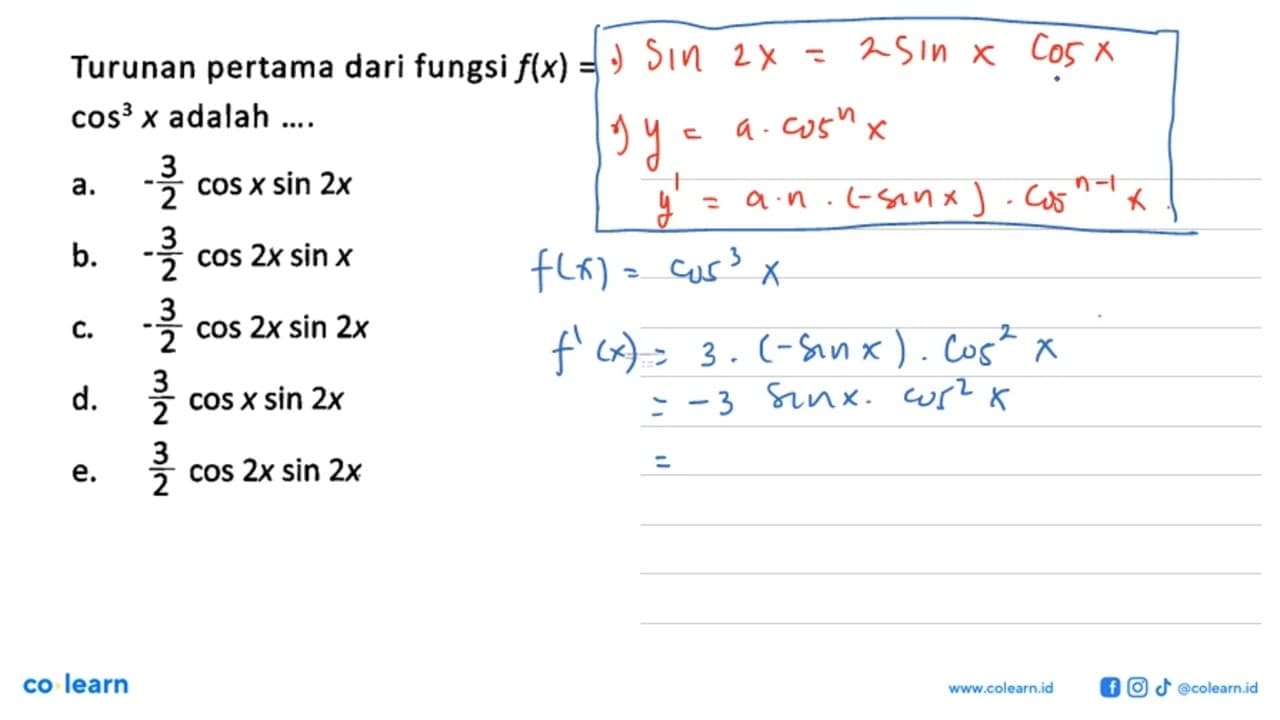 Turunan pertama dari fungsi f(x) =
cos³ x adalah ....
a. -3/2 cos x sin 2x
b. -3/2 cos 2x sin x
c. -3/2 cos 2x sin 2x
d. 3/2 cos x sin 2x
e. 3/2 cos 2x sin 2x
•) Sin 2x = 2 Sin x Cos x
•) y = a . cosⁿ x
y' = a.n . (-sin x) . Cosⁿ⁻¹ x
f(x) = cos³ x
f'(x) = 3 . (-Sin x) . Cos² x
= -3 Sin x . cos² x
=
co learn
www.colearn.id
@colearn.id